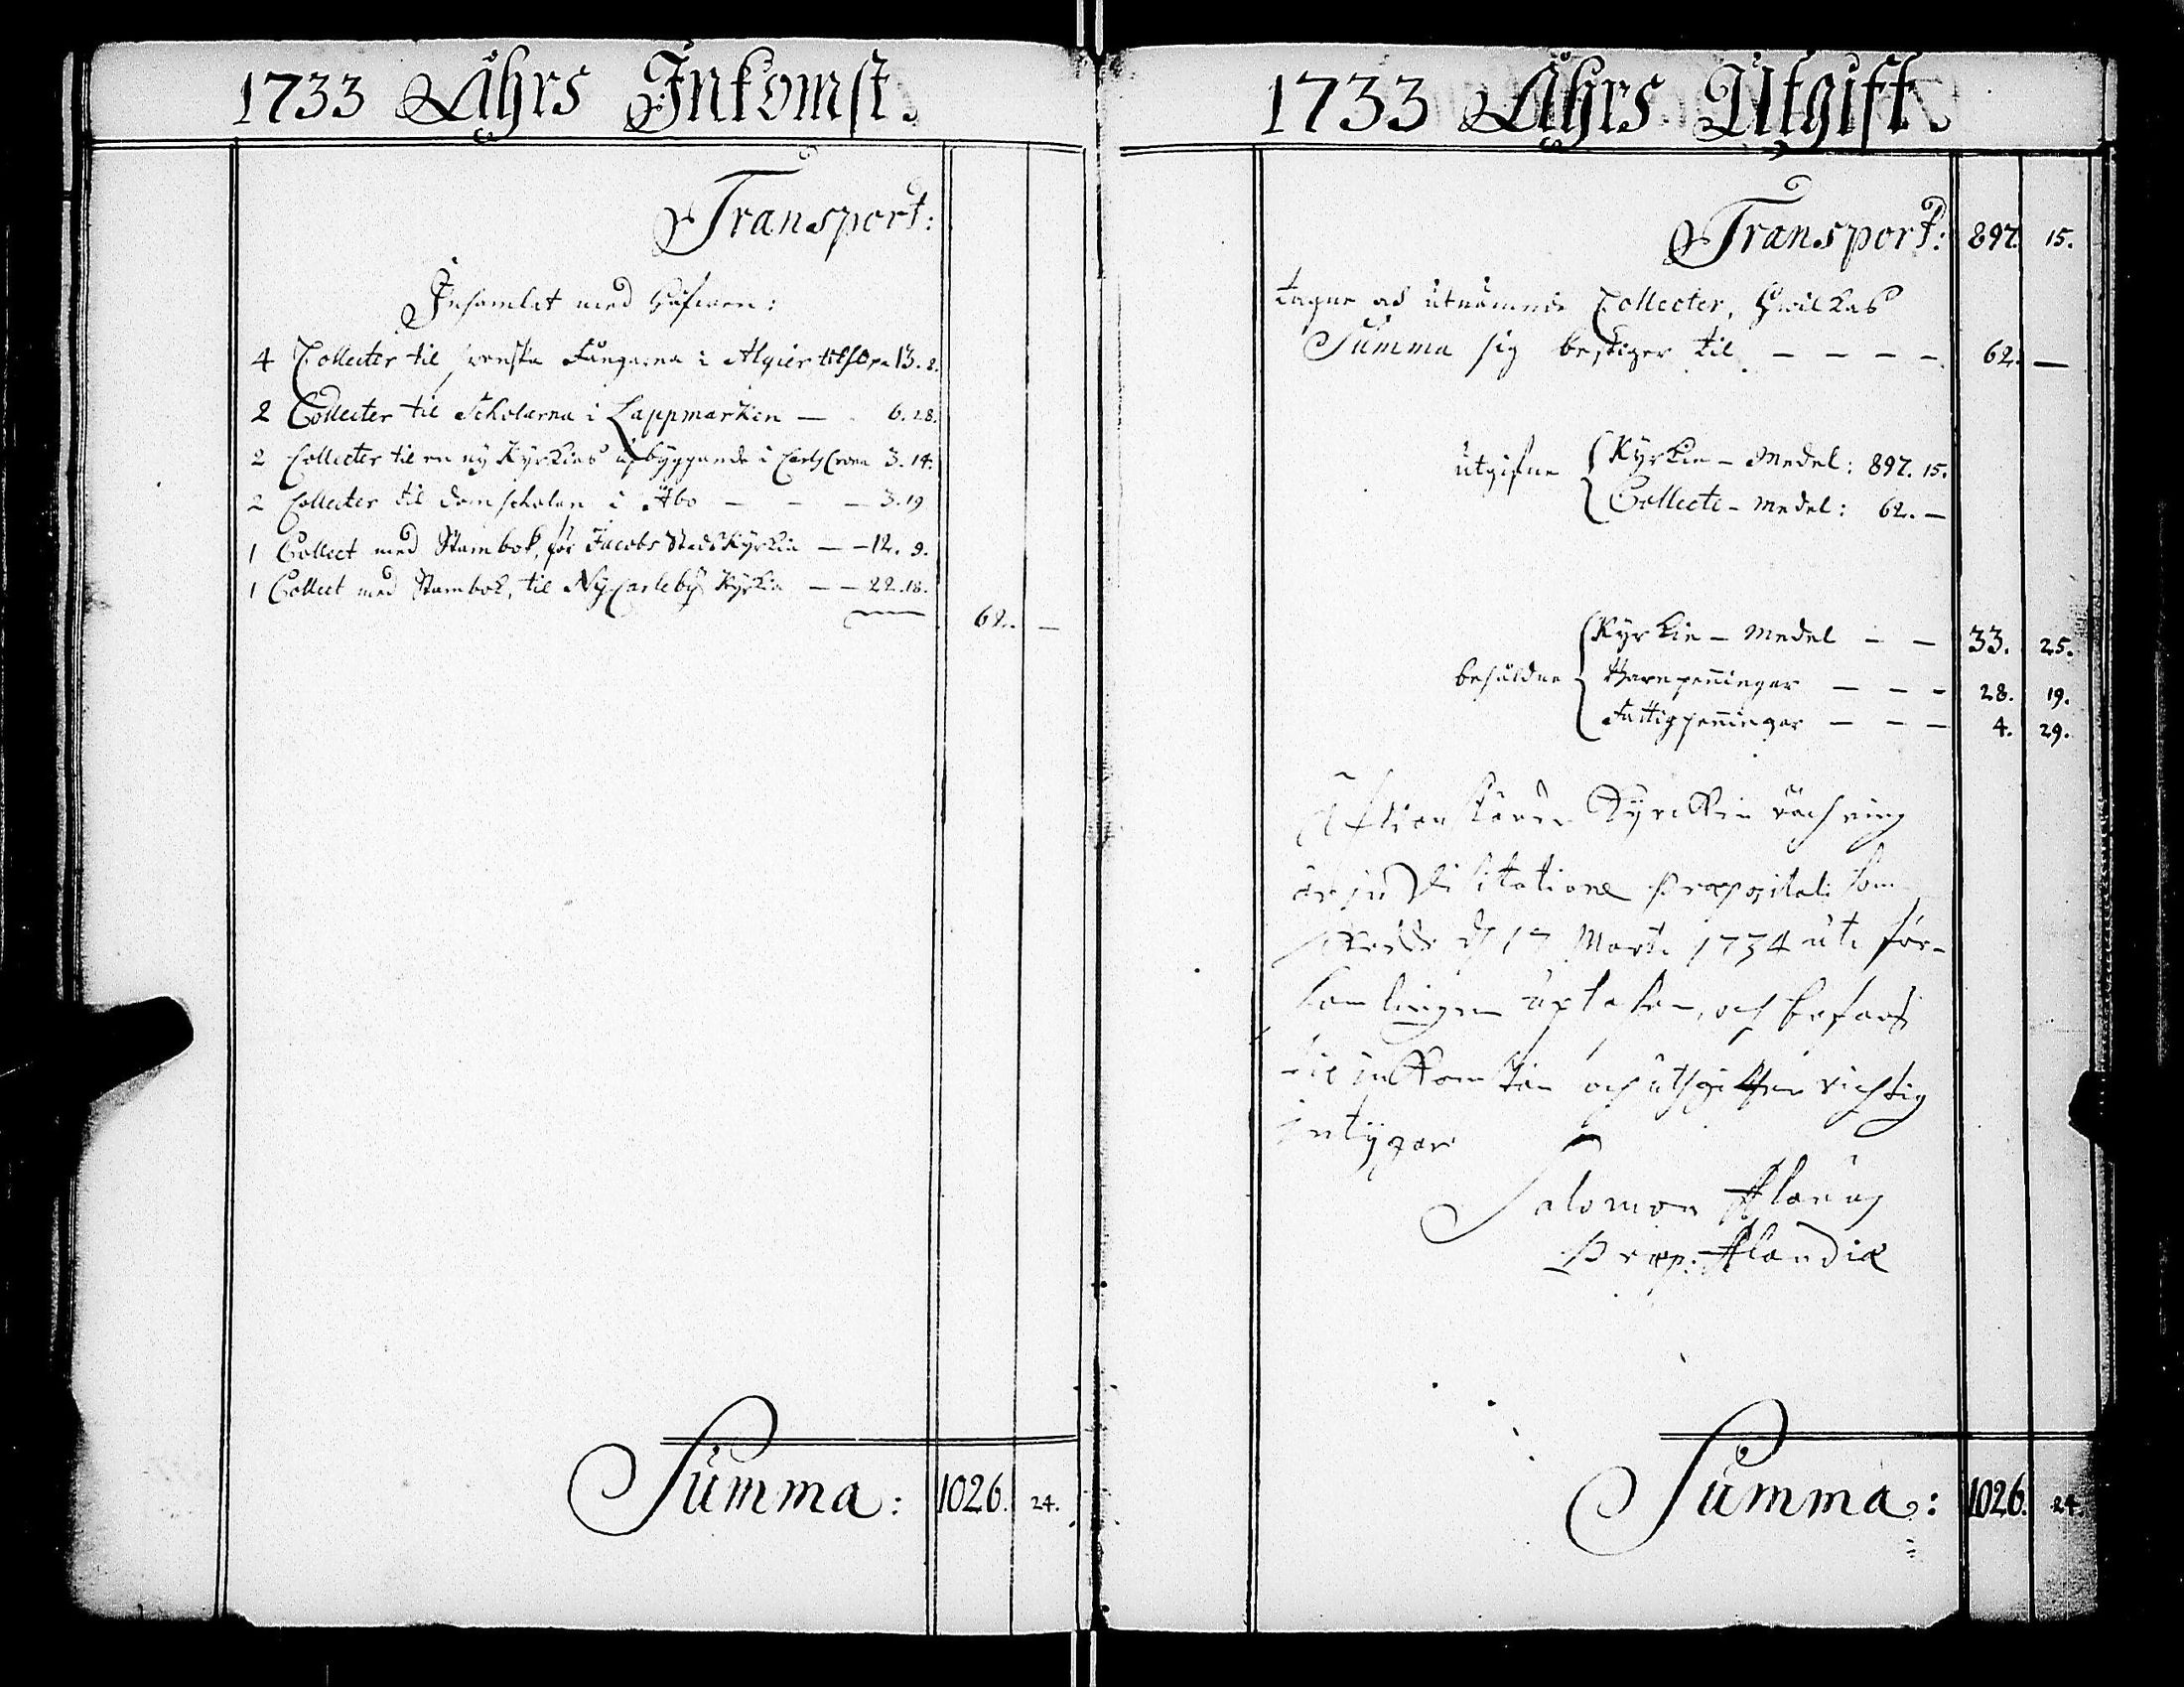 1733 Åhrs Inkomst.
Transport:
Insamlat med Håfwen:
4 Collecter til svenska Fångarna i Algier 13. 8.
2 Collecter til Scholarna i Lappmarken — 6. 28.
2 Collecter til en ny Kyrkias upbyggande i Carlscrona 3. 14.
2 Collecter til Domscholan i Åbo — — — 3. 19
1 Collect med Stambok, för Jacobs Stads Kyrkia — — 12. 9.
1 Collect med Stambok, til Ny Carleby Kyrkia — — 22. 18.
62. —
Summa: 1026. 24.
1733 Åhrs Utgift.
Transport: 897. 15.
utnämnde Collecter, hwilkas
Summa sig bestiger til — — — — 62. —
utgifne Kyrkie - Medel: 897. 15.
Collecte - medel: 62. —
behåldne Kyrkie - medel — — 33. 25.
Barnpeñingar — — — 28. 19.
Fattigpeñingar — — — 4. 29.
Kyrckio räckning
är in Visitatione Præpositali som
skedde d 17 Marti 1734 uti för-
samlingen och
inkomsten och utgiften richtig
intygar
Salomon
Præp: Alandiæ
Summa: 1026. 24.